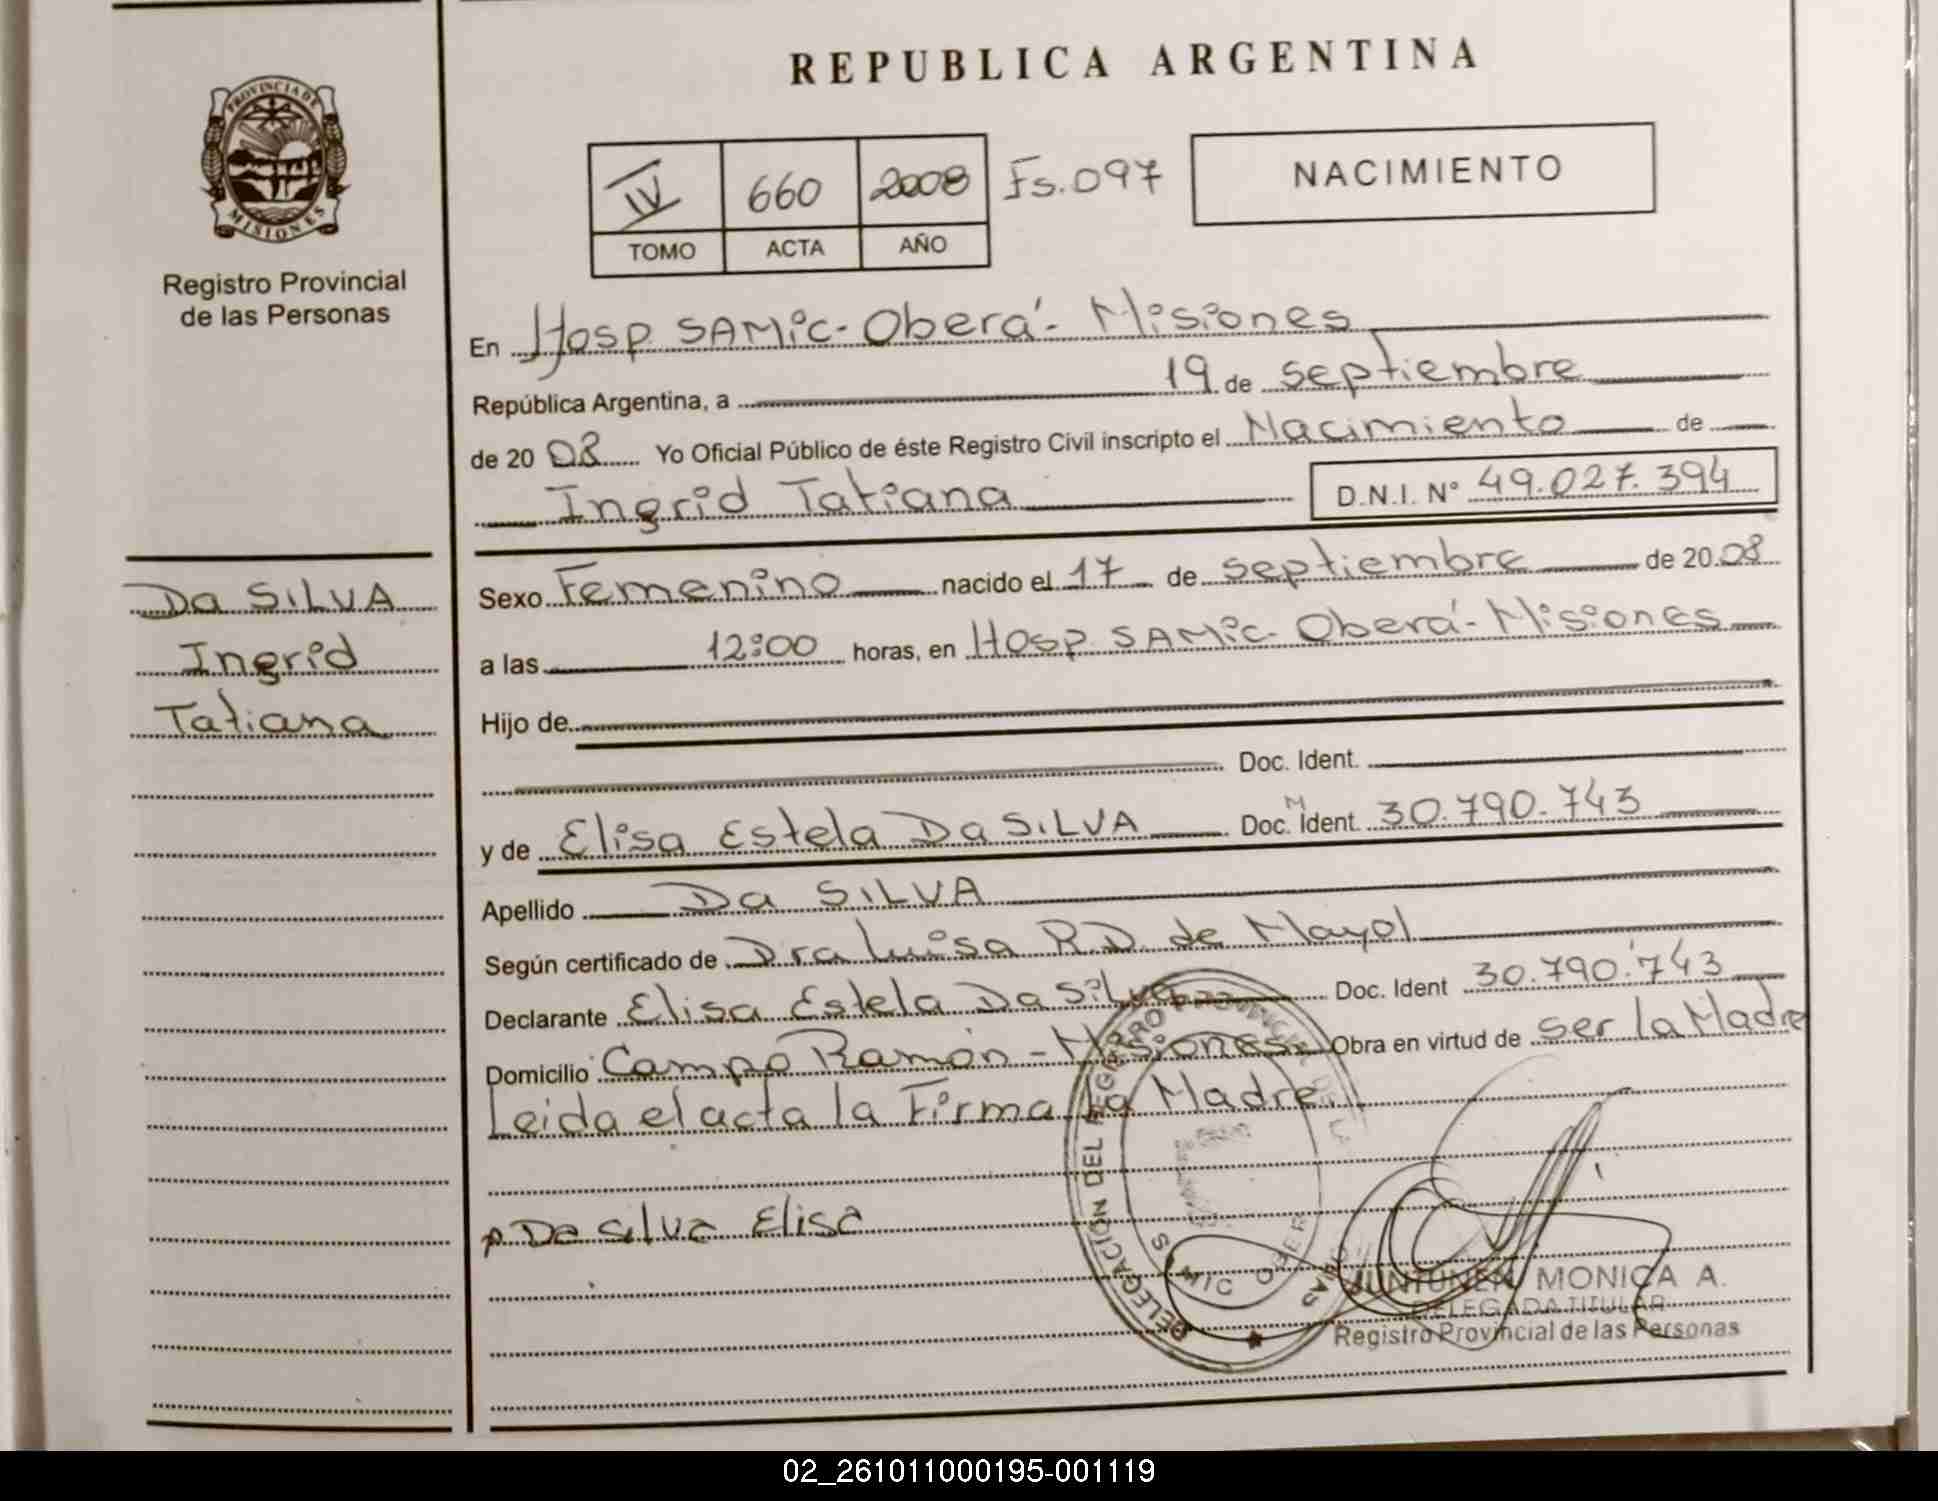 REPUBLICA ARGENTINA
PROVINCIA DE MISIONES
Registro Provincial
de las Personas
IV 660 2008 Fs.097
TOMO ACTA AÑO
NACIMIENTO
En Hosp SAMiC- Oberá- Misiones
República Argentina, a 19 de septiembre
de 20 08 Yo Oficial Público de éste Registro Civil inscripto el Nacimiento de
Ingrid Tatiana D.N.I. N° 49.027.394
DA SILVA
Ingrid
Tatiana
Sexo Femenino nacido el 17 de septiembre de 20.08
a las 12:00 horas, en Hosp SAMiC- Oberá- Misiones
Hijo de
Doc. Ident.
y de Elisa Estela Da SILVA Doc. M Ident. 30.790.743
Apellido Da SILVA
Según certificado de Dra Luisa R.D. de Mayol
Declarante Elisa Estela Da Silva Doc. Ident 30.790.743
Domicilio Campo Ramón - Misiones Obra en virtud de ser la Madre
Leida el acta la Firma la Madre
p. Da Silva Elisa
DELEGACIÓN DEL REGISTRO PROVINCIAL DE
JUNTUNEN MONICA A.
DELEGADA TITULAR
Registro Provincial de las Personas
02_261011000195-001119